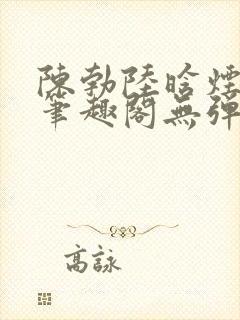 陳勃陸晗煙
筆趣閣無彈
高詠